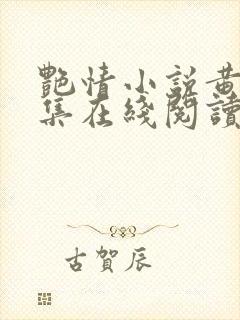 艷情小說黃
集在綫閱讀
古賀辰